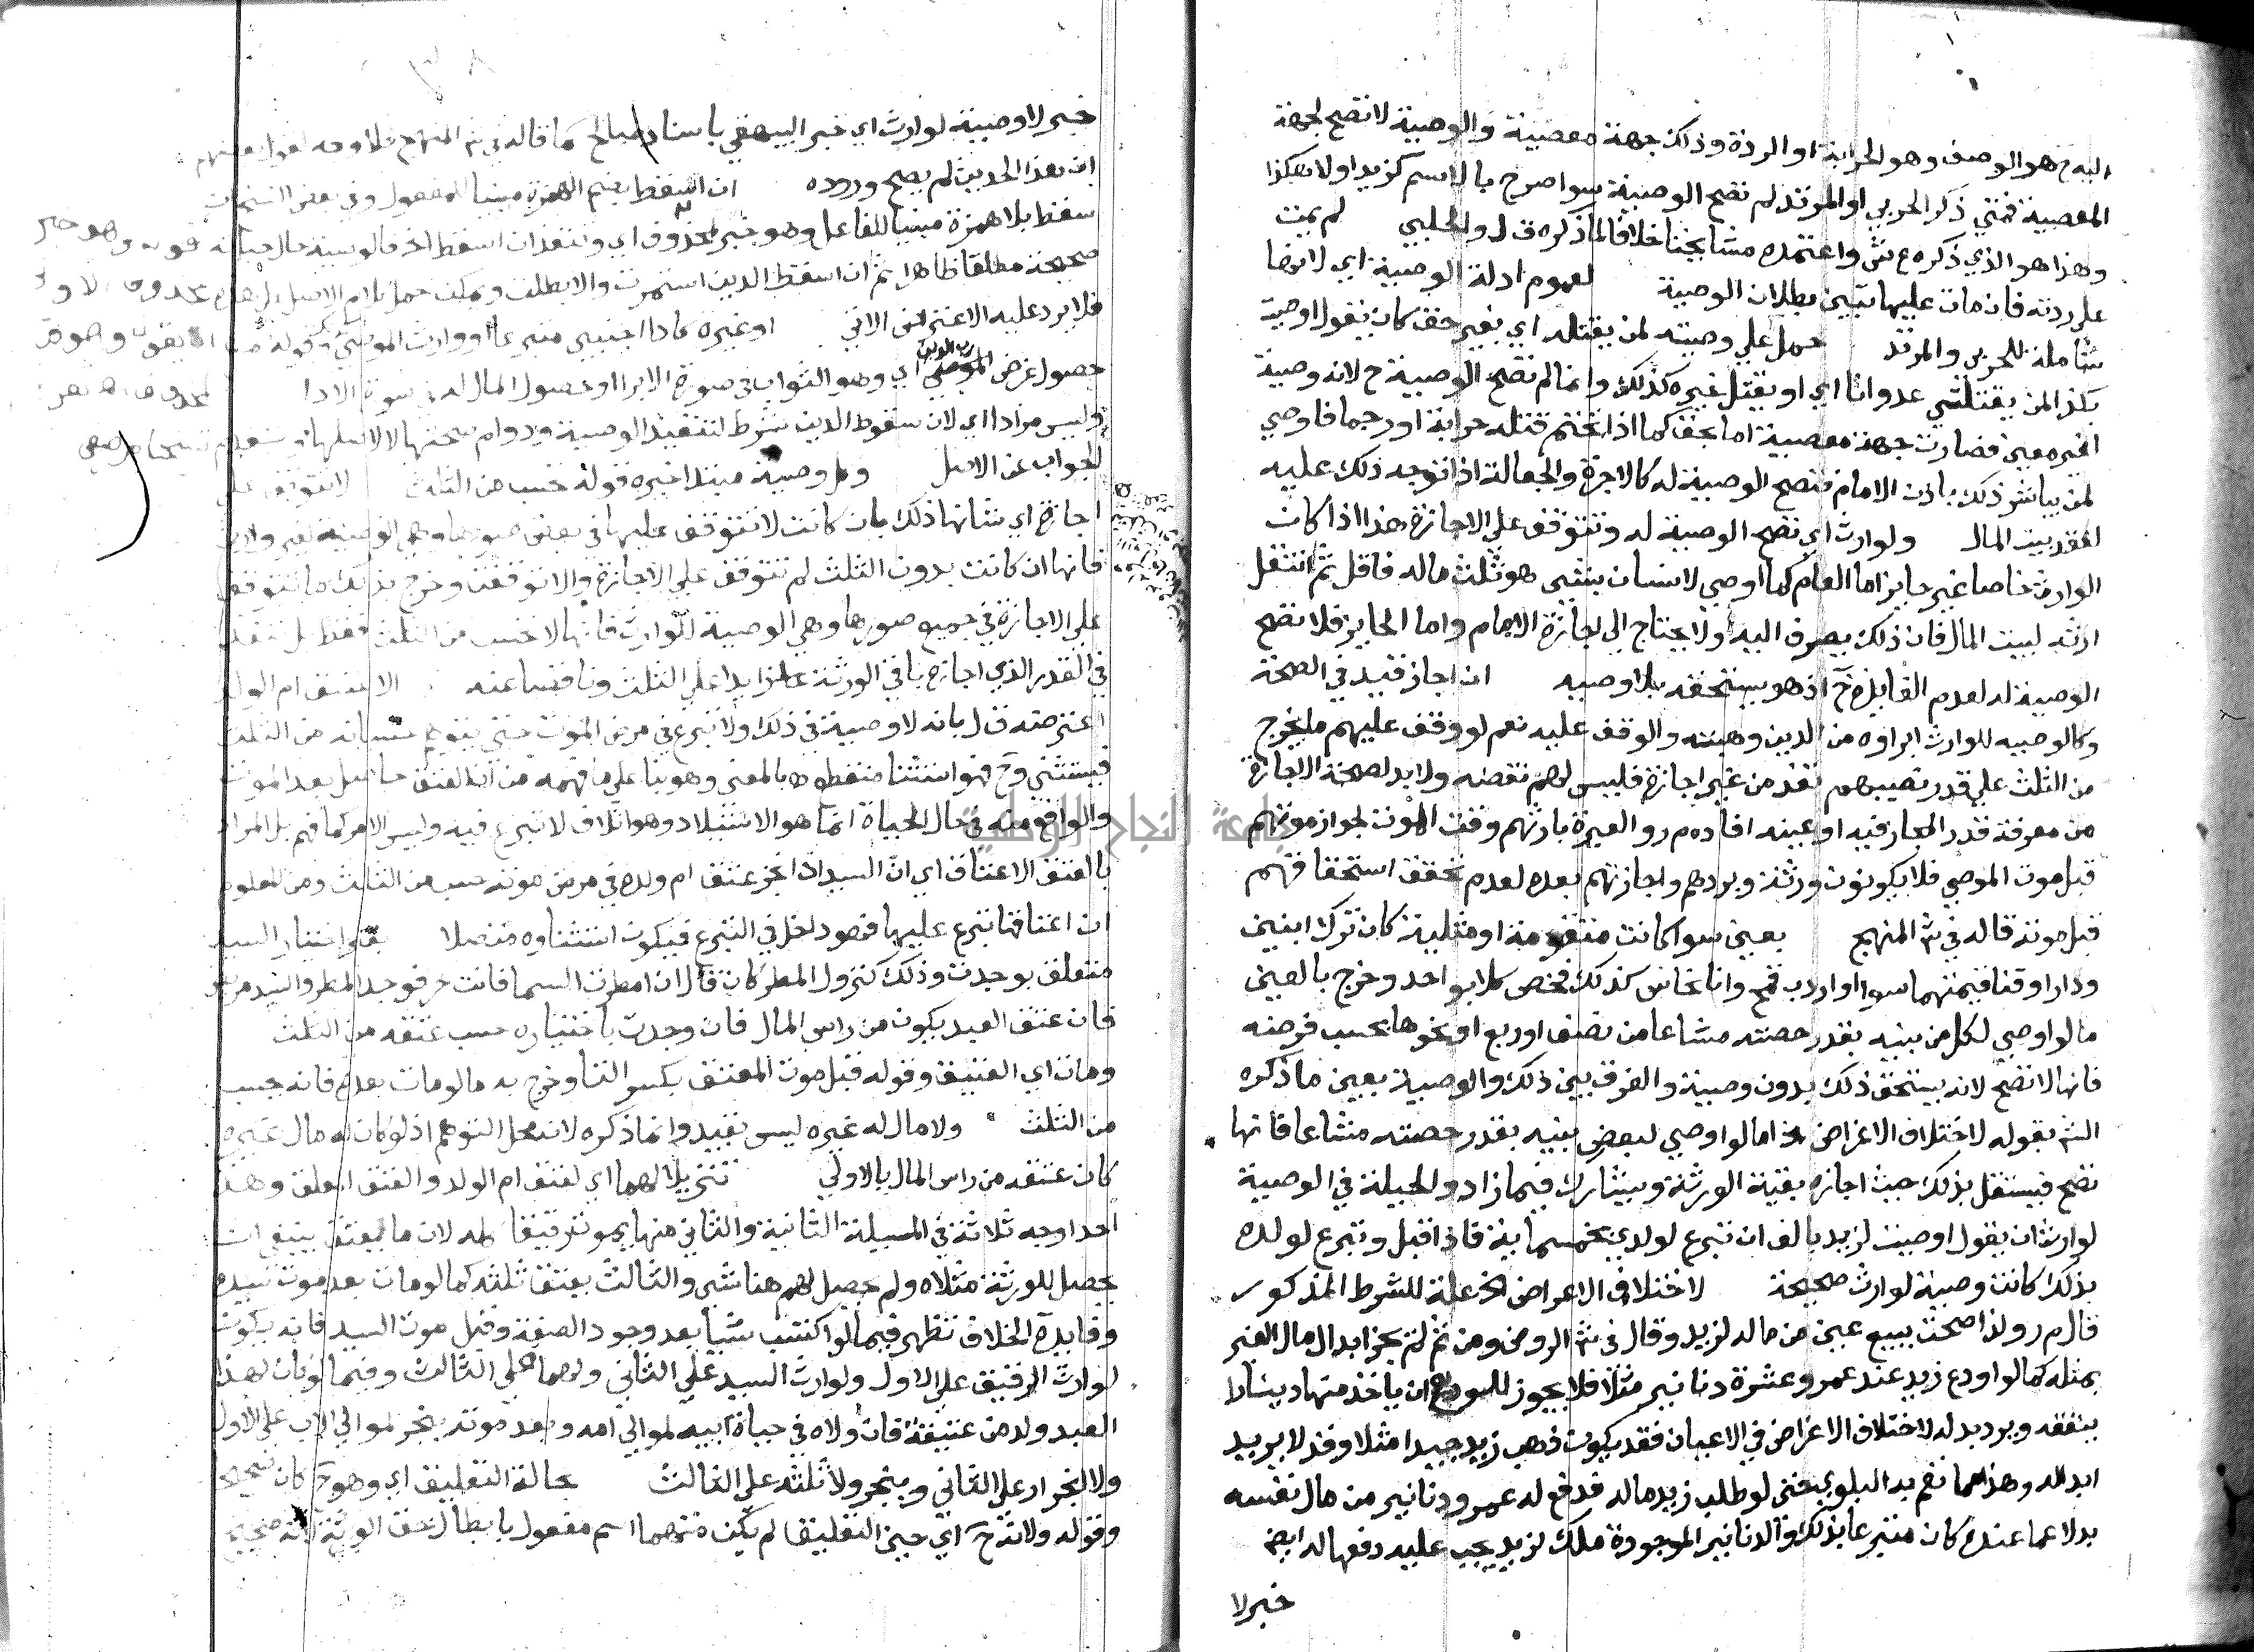 اليه ح هو الوصف وهو الحرابة او الردة وذلك جهة معصية والوصية لا تصح لجهة
المعصية فمتي ذكر الحربي او المرتد لم تصح الوصية سوا صرح بالاسم كزيد او لا هكذا
وهذا هو الذي ذكره ع ش واعتمده مشايخنا خلافا لما ذكره ق ل والحلبي لم يمت
علي ردته فان مات عليها تبين بطلان الوصية لعموم ادلة الوصية اي لانها
شاملة للحربي والمرتد حمل علي وصيته لمن يقتله اي بغير حق كان يقول اوصيت
بكذا لمن يقتلني عدوانا اي او يقتل غيره كذلك وانما لم تصح الوصية ح لانه وصية
لغير معين فصارت جهة معصية اما بحق كما اذا تحتم قتله حرابة او رجما فاوصي
لمن يباشر ذلك باذن الامام فتصح الوصية له كالاجرة والجعالة اذا توجه ذلك عليه
لفقد بيت المال ولوارث اي تصح الوصية له وتتوقف علي الاجازة هذا اذا كان
الوارث خاصا غير حايز اما العام كما اوصي لانسان بشي هو ثلث ماله فاقل ثم انتقل
ارثه لبيت المال فان ذلك يصرف اليه ولا يحتاج الي اجازة الامام واما الحايز فلا تصح
الوصية له لعدم الفايدة ح اذ هو يستحقه بلا وصيه ان اجاز قيد في الصحة
وكالوصيه للوارث ابراوه من الدين وهبته والوقف عليه نعم لو وقف عليهم ما يخرج
من الثلث علي قدر نصيبهم نفذ من غير اجازة فليس لهم نقضه ولا بد لصحة الاجازة
من معرفة قدر المجاز فيه او عينه افاده م ر والعبرة بارثهم وقت الموت لجواز موتهم
قبل موت الموصي فلا يكونون ورثة وبردهم واجازتهم بعده لعدم تحقق استحقاقهم
قبل موته قاله في ش المنهج بعين سوا كانت متقومة او مثلية كان ترك ابنين
ودارا وقنا قيمتهما سوا او اردب قمح وانا نحاس كذلك فخص كلا بواحد وخرج بالعين
ما لو اوصي لكل من بنيه بقدر حصته مشاعا من نصف او ربع او نحوها بحسب فرضه
فانها لا تصح لانه يستحق ذلك بدون وصية والفرق بين ذلك والوصية بعين ما ذكره
الش بقوله لاختلاف الاغراض اما لو اوصي لبعض بنيه بقدر حصته مشاعا فانها
تصح فيستقل بذلك حيث اجازه بقية الورثة ويشارك فيما زاد والحيلة في الوصية
لوارث ان يقول اوصيت لزيد بالف ان تبرع لولدي بخمسماية فاذا قبل وتبرع لولده
بذلك كانت وصية لوارث صحيحة لاختلاف الاعراض الخ علة للشرط المذكور
قال م ر ولذا صحت ببيع عين من ماله لزيد وقال في ش الروض ومن ثم لم يجز ابدال مال الغير
بمثله كما لو اودع زيد عند عمرو عشرة دنانير مثلا فلا يجوز للمودع ان ياخذ منها دينارا
ينفقه ويرد بدله لاختلاف الاغراض في الاعيان فقد يكون ذهب زيد جيدا مثلا وقد لا يريد
ابداله وهذا مما تعم به البلوي حتي لو طلب زيد ماله فدفع له عمرو دنانير من مال نفسه
بدلا عما عنده كان متبرعا بذلك والدنانير الموجودة ملك لزيد يجب عليه دفعها له ايضا
خبر لا
خبر لا وصية لوارث اي خبر البيهقي باسناد صالح كما قاله في ش المنهج فلا وجه لقول بعضهم
ان هذا الحديث لم يصح وروده ان اسقط بضم الهمزة مبنيا للمفعول وفي بعض النسخ ان
سقط بلا همزة مبنيا للفاعل وهو خبر لمحذوف اي وتنفذ ان اسقط الخ فالوصية حال حياته
صحيحة مطلقا ظاهرا ثم ان اسقط الدين استمرت والا بطلت ويمكن حمل كلام الاصل
فلا يرد عليه الاعتراض الاتي او غيره كاداء اجنبي متبرعا او وارث الموصي
حصول غرض الموصي اي وهو الثواب في صورة الابرا او حصول المال له في صورة الادا
وليس مرادا اي لان سقوط الدين شرط لتنفيذ الوصية ودوام صحتها لا لاصلها
الجواب عن الاصل وكل وصية مبتدا خبره قوله تحسب من الثلث لا تتوقف علي
اجازة اي شانها ذلك بان كانت لا تتوقف عليها في بعض صورها وهي الوصية لغير وارث
فانها ان كانت بدون الثلث لم تتوقف علي الاجازة والا توقفت وخرج بذلك ما يتوقف
علي الاجازة في جميع صورها وهي الوصية للوارث فانها لا تحسب من الثلث فقط بل تنفذ
في القدر الذي اجازه باقي الورثة زايدا علي الثلث وناقصا عنه الا عتق ام الولد
اعترضه ق ل بانه لا وصية في ذلك ولا تبرع في مرض الموت حتي يتوهم حسبانه من الثلث
فيستثني وح فهو استثنا منقطع بالمعني وهو بنا علي ما فهمه من ان العتق حاصل بعد الموت
والواقع منه في حال الحياة انما هو الاستيلاد وهو اتلاف لا تبرع فيه وليس الامر كما فهم بل المراد
بالعتق الاعتاق اي ان السيد اذا نجز عتق ام ولده في مرض موته حسب من الثلث ومن المعلوم
ان اعتاقها تبرع عليها فهو داخل في التبرع فيكون استثناوه متصلا بغير اختيار السيد
متعلق بوجدت وذلك كنزول المطر كان قال ان امطرت السما فانت حر فوجد المطر والسيد مريض
فان عتق العبد يكون من راس المال فان وجدت باختياره حسب عتقه من الثلث
ومات اي العتيق وقوله قبل موت المعتق بكسر التا وخرج به ما لو مات بعده فانه يحسب
من الثلث ولا مال له غيره ليس بقيد وانما ذكره لانه محل التوهم اذ لو كان له مال غيره
كان عتقه من راس المال بالاولي تنزيلا لهما اي لعتق ام الولد والعتق المعلق وهذا
احد اوجه ثلاثة في المسيلة الثانية والثاني منها يموت رقيقا كله لان ما يعتق ينبغي ان
يحصل للورثة مثلاه ولم يحصل لهم هنا شي والثالث يعتق ثلثه كما لو مات بعد موت سيده
وفايدة الخلاف تظهر فيما لو اكتسب شيا بعد وجود الصفة وقبل موت السيد فانه يكون
لوارث الرقيق علي الاول ولوارث السيد علي الثاني ولهما علي الثالث وفيما لو كان لهذا
العبد ولد من عتيقة فان ولاه في حياة ابيه لموالي امه وبعد موته ينجر لموالي الاب علي الاول
ولا انجرار علي الثاني وينجر ولا ثلثه علي الثالث بحالة التعليق اي وهو ح كان صحيحا
وقوله ولانه ح اي حين التعليق لم يكن متهما اسم مفعول بابطال حق الورثة لانه صحيح